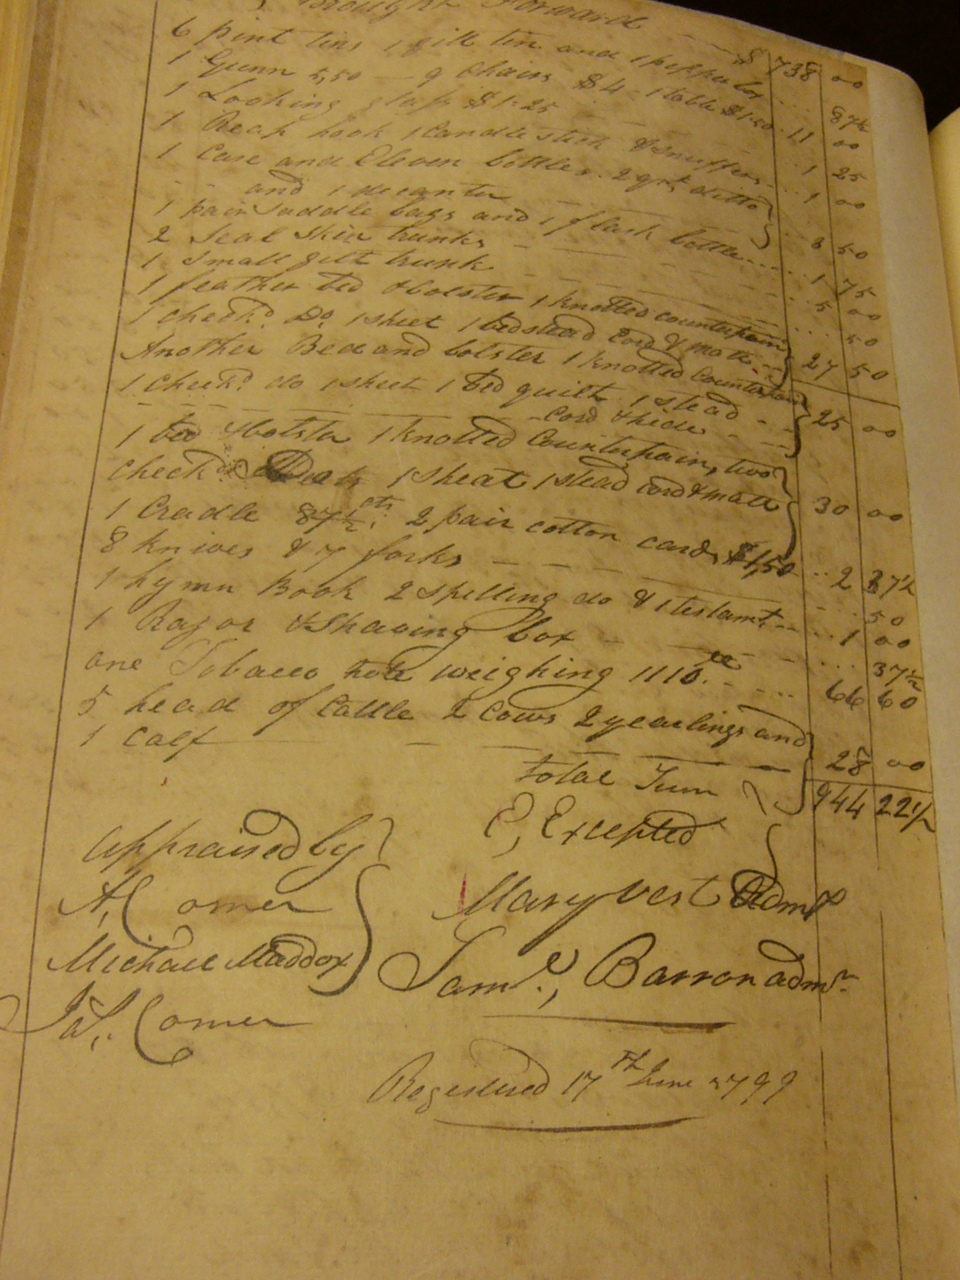 Brought Forward $ 738 00
6 pint tins 1 gill tin and 1 pepper box 87½
1 Gunn 5,50 9 Chairs $4 1 table $1.50 11 00
1 Looking glass $1.25 1 25
1 Reap hook 1 Candle stick & snuffers 1 00
1 Case and Eleven bottles 2 qrt ditto
and 1 decanter 8 50
1 pair Saddle bags and 1 flask bottle 1 75
2 Seal Skin trunks 5 00
1 Small gilt trunk 50
1 feather bed & bolster 1 Knotted counterpain
1 check.d Do. 1 sheet 1 bedstead Cord & matt 27 50
Another Bed and bolster 1 Knotted Counterpain
1 check.d do 1 sheet 1 bed quilt 1 stead
Cord & hide 25 00
1 bed & bolster 1 Knotted Counterpain, two
check.d 1 Sheat 1 stead cord & matt 30 00
1 Cradle 87½ cts. 2 pair cotton cards $1,50 2 37½
8 Knives & 7 forks 50
1 hymn Book 2 Spelling do & 1 testamt. 1 00
1 Razor & Shaving box 37½
one Tobacco weighing 1110 66 60
5 head of Cattle 2 Cows 2 yearlings and
1 Calf 28 00
total Sum 944 22½
E, Excepted
Appraised by
A, Comer
Mary Vest Admx
Michael Maddox
Sam.l, Barron adm.r
Jas,. Comer
Registered 17th June 1799